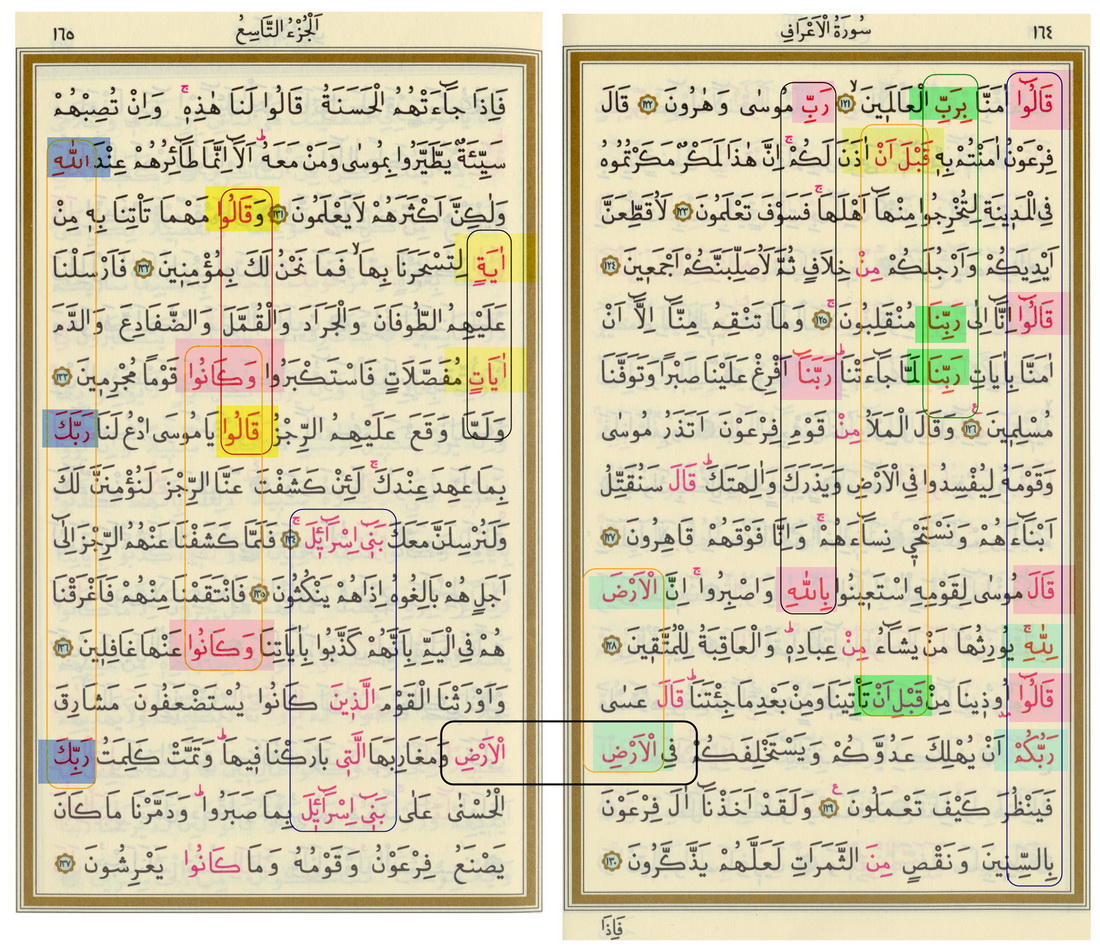 ١٦٤
سُورَةُ الْاَعْرَافِ
قَالُٓوا اٰمَنَّا بِرَبِّ الْعَالَمٖينَۙ ﴿١٢١﴾ رَبِّ مُوسٰى وَهٰرُونَ ﴿١٢٢﴾ قَالَ
فِرْعَوْنُ اٰمَنْتُمْ بِهٖ قَبْلَ اَنْ اٰذَنَ لَكُمْۚ اِنَّ هٰذَا لَمَكْرٌ مَكَرْتُمُوهُ
فِى الْمَدٖينَةِ لِتُخْرِجُوا مِنْهَٓا اَهْلَهَاۚ فَسَوْفَ تَعْلَمُونَ ﴿١٢٣﴾ لَاُقَطِّعَنَّ
اَيْدِيَكُمْ وَاَرْجُلَكُمْ مِنْ خِلَافٍ ثُمَّ لَاُصَلِّبَنَّكُمْ اَجْمَعٖينَ ﴿١٢٤﴾
قَالُٓوا اِنَّٓا اِلٰى رَبِّنَا مُنْقَلِبُونَۚ ﴿١٢٥﴾ وَمَا تَنْقِمُ مِنَّٓا اِلَّٓا اَنْ
اٰمَنَّا بِاٰيَاتِ رَبِّنَا لَمَّا جَٓاءَتْنَاۜ رَبَّنَٓا اَفْرِغْ عَلَيْنَا صَبْرًا وَتَوَفَّنَا
مُسْلِمٖينَ ﴿١٢٦﴾ وَقَالَ الْمَلَاُ مِنْ قَوْمِ فِرْعَوْنَ اَتَذَرُ مُوسٰى
وَقَوْمَهُ لِيُفْسِدُوا فِى الْاَرْضِ وَيَذَرَكَ وَاٰلِهَتَكَۜ قَالَ سَنُقَتِّلُ
اَبْنَٓاءَهُمْ وَنَسْتَحْيٖ نِسَٓاءَهُمْۚ وَاِنَّا فَوْقَهُمْ قَاهِرُونَ ﴿١٢٧﴾
قَالَ مُوسٰى لِقَوْمِهِ اسْتَعٖينُوا بِاللّٰهِ وَاصْبِرُواۚ اِنَّ الْاَرْضَ
لِلّٰهِ يُورِثُهَا مَنْ يَشَٓاءُ مِنْ عِبَادِهٖۜ وَالْعَاقِبَةُ لِلْمُتَّقٖينَ ﴿١٢٨﴾
قَالُٓوا اُوذٖينَا مِنْ قَبْلِ اَنْ تَأْتِيَنَا وَمِنْ بَعْدِ مَا جِئْتَنَاۜ قَالَ عَسٰى
رَبُّكُمْ اَنْ يُهْلِكَ عَدُوَّكُمْ وَيَسْتَخْلِفَكُمْ فِى الْاَرْضِ
فَيَنْظُرَ كَيْفَ تَعْمَلُونَ ﴿١٢٩﴾ وَلَقَدْ اَخَذْنَٓا اٰلَ فِرْعَوْنَ
بِالسِّنٖينَ وَنَقْصٍ مِنَ الثَّمَرَاتِ لَعَلَّهُمْ يَذَّكَّرُونَ ﴿١٣٠﴾
فَاِذَا
اَلْجُزْءُ التَّاسِعُ
١٦٥
فَاِذَا جَٓاءَتْهُمُ الْحَسَنَةُ قَالُوا لَنَا هٰذِهٖۚ وَاِنْ تُصِبْهُمْ
سَيِّئَةٌ يَطَّيَّرُوا بِمُوسٰى وَمَنْ مَعَهُۜ اَلَٓا اِنَّمَا طَٓائِرُهُمْ عِنْدَ اللّٰهِ
وَلٰكِنَّ اَكْثَرَهُمْ لَا يَعْلَمُونَ ﴿١٣١﴾ وَقَالُوا مَهْمَا تَأْتِنَا بِهٖ مِنْ
اٰيَةٍ لِتَسْحَرَنَا بِهَاۙ فَمَا نَحْنُ لَكَ بِمُؤْمِنٖينَ ﴿١٣٢﴾ فَاَرْسَلْنَا
عَلَيْهِمُ الطُّوفَانَ وَالْجَرَادَ وَالْقُمَّلَ وَالضَّفَادِعَ وَالدَّمَ
اٰيَاتٍ مُفَصَّلَاتٍ فَاسْتَكْبَرُوا وَكَانُوا قَوْمًا مُجْرِمٖينَ ﴿١٣٣﴾
وَلَمَّا وَقَعَ عَلَيْهِمُ الرِّجْزُ قَالُوا يَا مُوسَى ادْعُ لَنَا رَبَّكَ
بِمَا عَهِدَ عِنْدَكَۚ لَئِنْ كَشَفْتَ عَنَّا الرِّجْزَ لَنُؤْمِنَنَّ لَكَ
وَلَنُرْسِلَنَّ مَعَكَ بَنٖٓى اِسْرَٓائٖلَۚ ﴿١٣٤﴾ فَلَمَّا كَشَفْنَا عَنْهُمُ الرِّجْزَ اِلٰٓى
اَجَلٍ هُمْ بَالِغُوهُ اِذَا هُمْ يَنْكُثُونَ ﴿١٣٥﴾ فَانْتَقَمْنَا مِنْهُمْ فَاَغْرَقْنَا
هُمْ فِى الْيَمِّ بِاَنَّهُمْ كَذَّبُوا بِاٰيَاتِنَا وَكَانُوا عَنْهَا غَافِلٖينَ ﴿١٣٦﴾
وَاَوْرَثْنَا الْقَوْمَ الَّذٖينَ كَانُوا يُسْتَضْعَفُونَ مَشَارِقَ
الْاَرْضِ وَمَغَارِبَهَا الَّتٖى بَارَكْنَا فٖيهَاۜ وَتَمَّتْ كَلِمَتُ رَبِّكَ
الْحُسْنٰى عَلٰى بَنٖٓى اِسْرَٓائٖلَ بِمَا صَبَرُواۜ وَدَمَّرْنَا مَا كَانَ
يَصْنَعُ فِرْعَوْنُ وَقَوْمُهُ وَمَا كَانُوا يَعْرِشُونَ ﴿١٣٧﴾